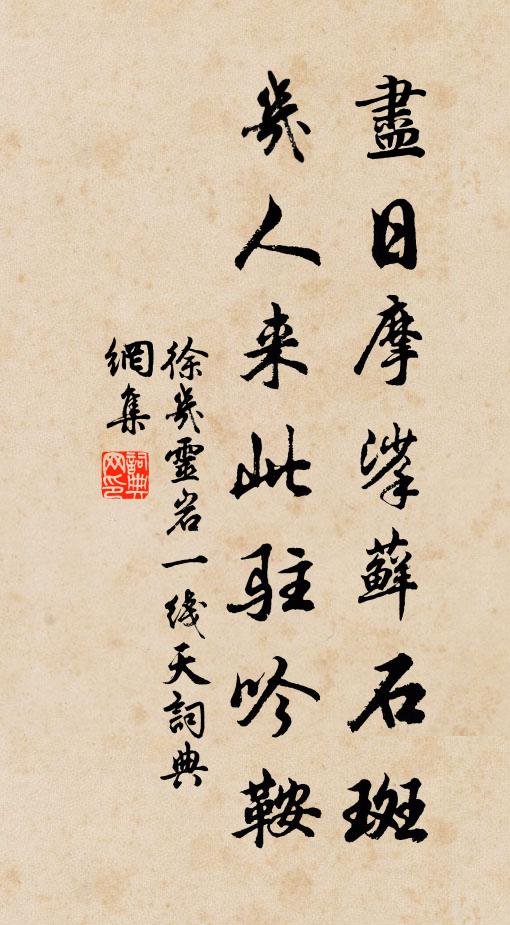 盡日摩挲蘚石斑
幾人来此駐吟鞍
徐幾靈岩一线天詞典
網集
詞典
网印